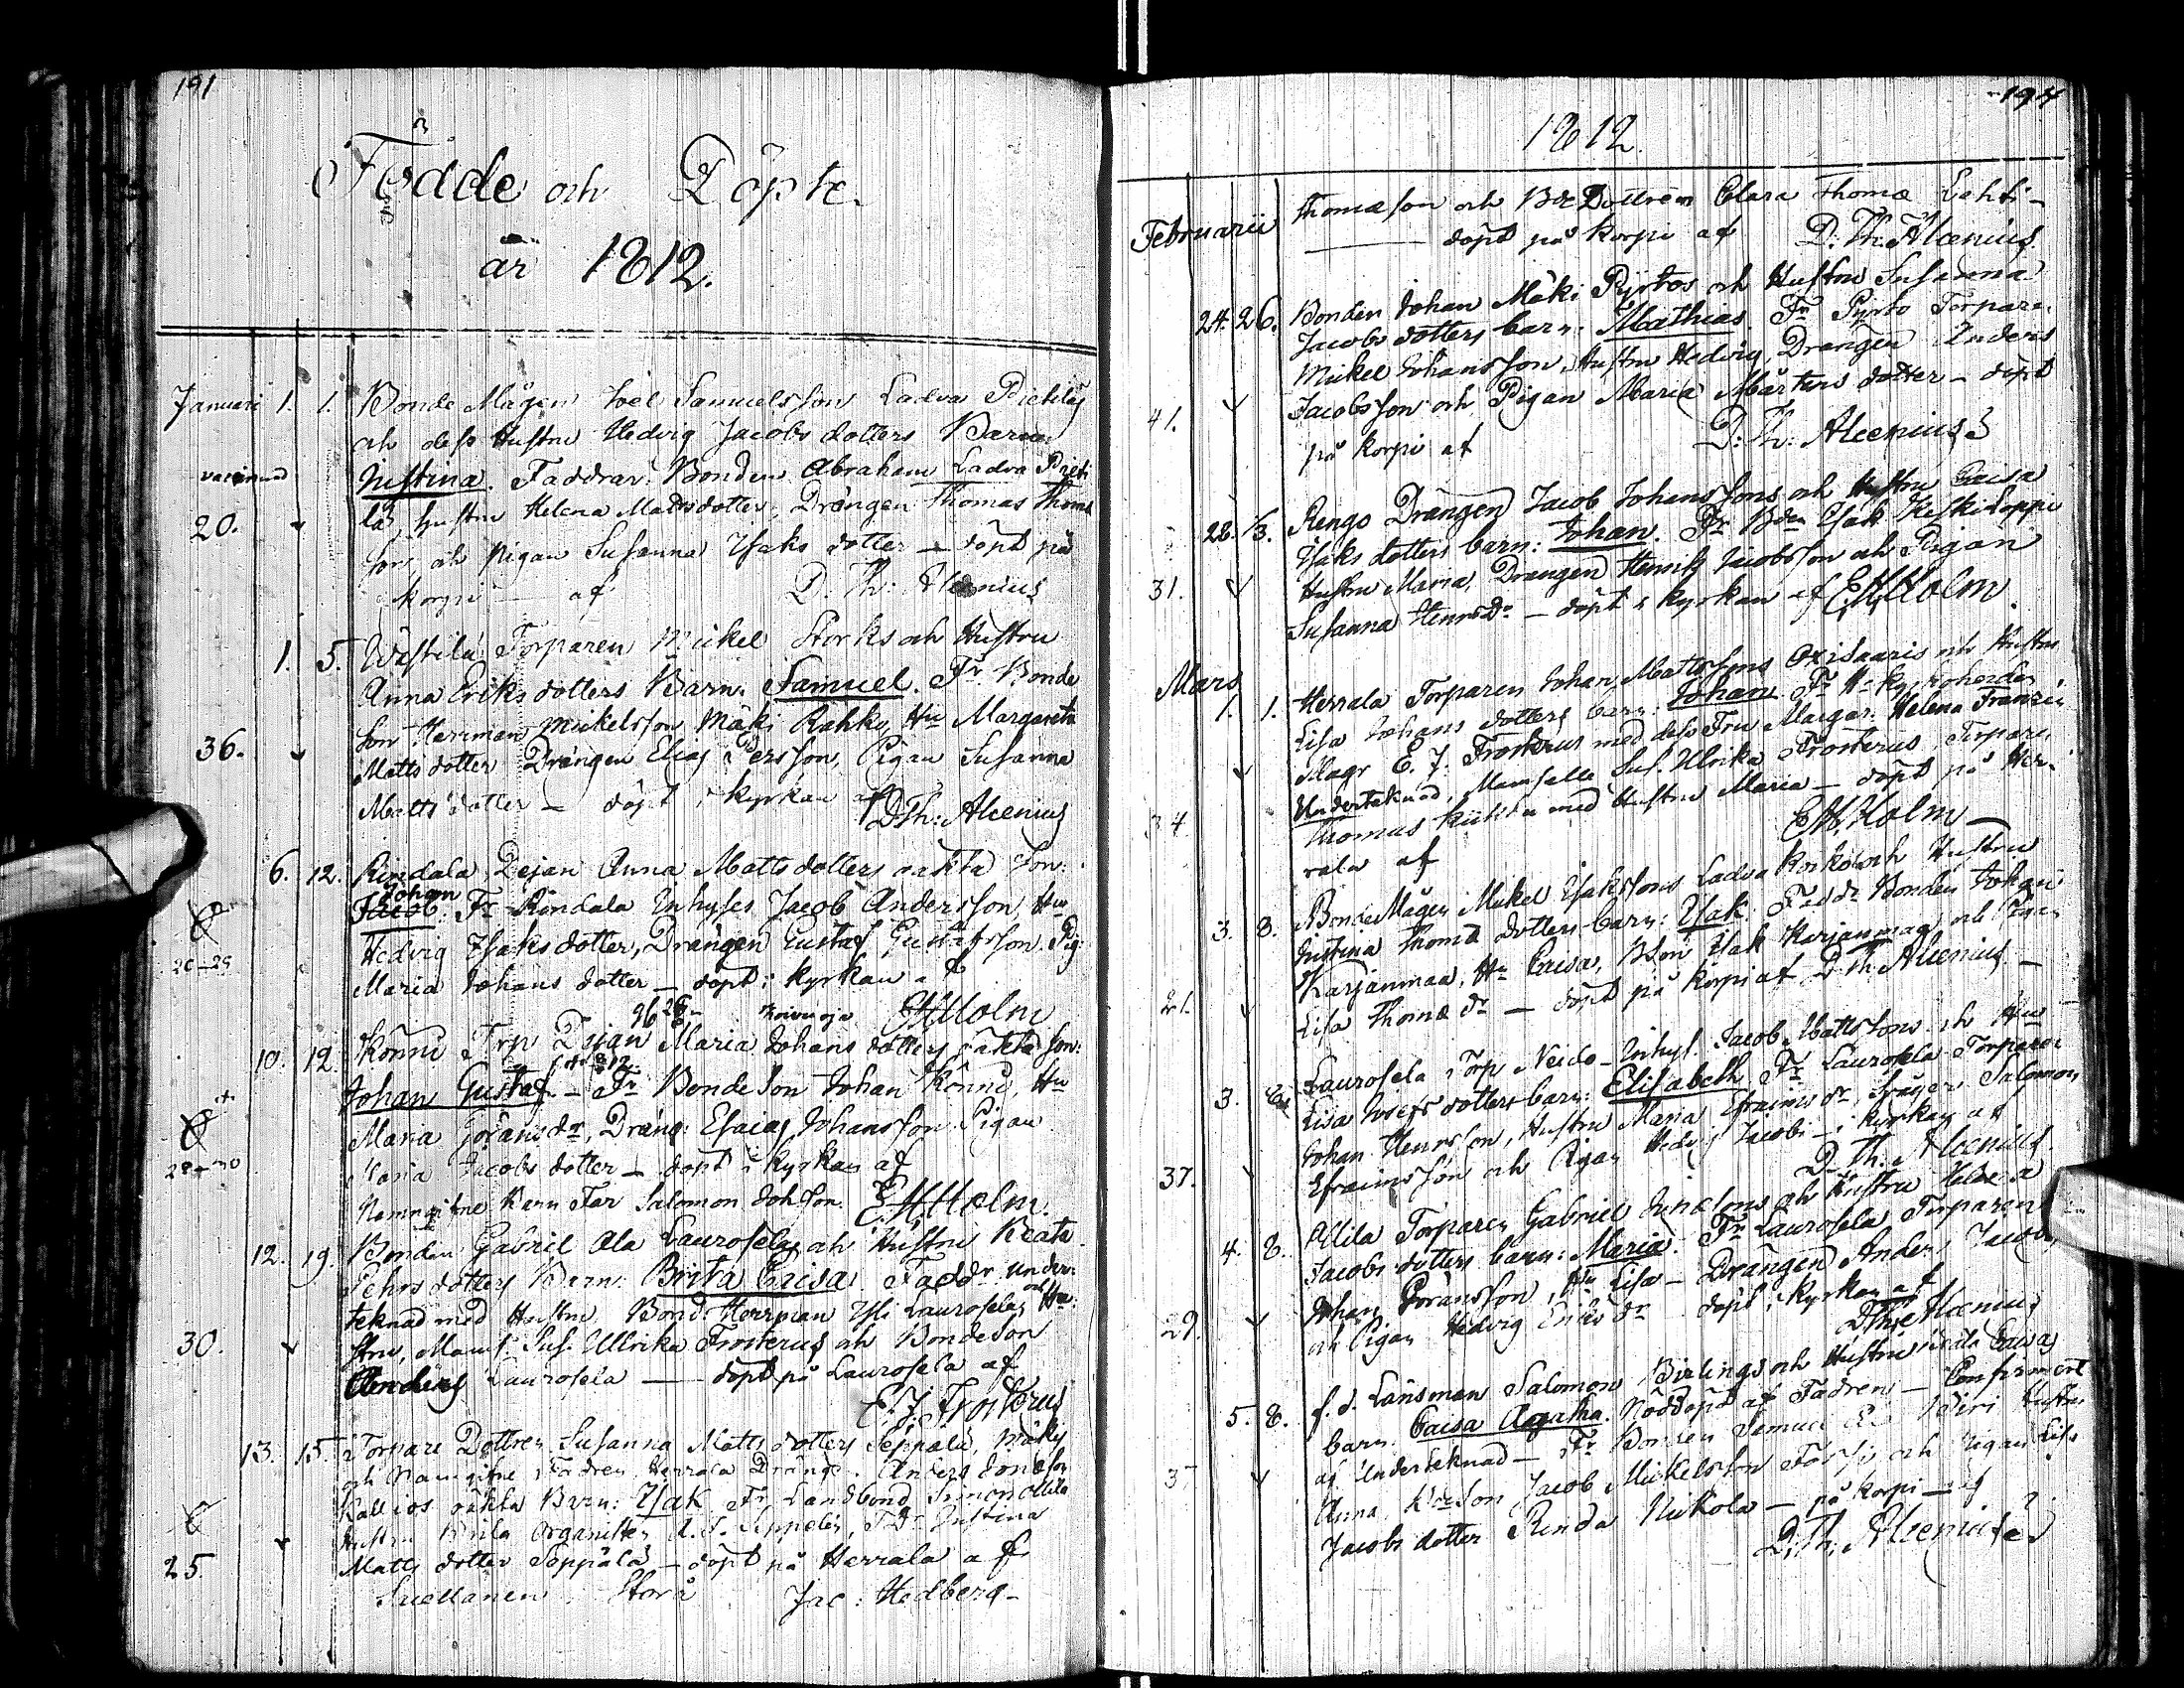 191
Födde och Döpte
år 1812.
Januari 1. 1. Bonde Mågen Joel Samuelsson Ladva Pietilas
och dess Hustru Hedvig Jacobs dotters Barn:
vaccinerad Justina. Faddrar: Bonden Abraham Ladva Pieti
la, Hustru Helena Mattsdotter, Drängen Thomas Thomæ
20. son och Pigan Susanna Isaks dotter — döpt på
Korpi — af D. Th: Alcenius
1. 5. Wästilä Torparen Mickel Storks och Hustru
Anna Eriks dotters Barn: Samuel. Fr Bonde
Son Herrman Mickelsson Mäki Rahko, Hu Margareta
36. Matts dotter Drängen Elias Persson, Pigan Susanna
Matts dotter — döpt i kyrkan af
D. Th: Alcenius
6. 12. Rindala Dejan Anna Matts dotters oäkta Son:
Johan
Jacob. Fr Rindala Inhyses Jacob Andersson, Hu
Hedvig Isaks dotter, Drängen Gustaf Gustafsson. Pig:
20-29
Maria Johans dotter — döpt i kyrkan af
EHHolm
10. 12. Könni Trp Dejan Maria Johans dotters oäkta son:
Johan Gustaf — Fr Bonde Son Johan Könni, Hu
Maria Göransdr, Dräng: Esaias Johansson. Pigan
Maria Jacobs dotter — döpt i kyrkan af
Namngifne Barn Far Salomon Johsson. EHHolm.
12. 19. Bonden Gabriel Ala Laurosela och Hustru Beata
Pehrs dotters Barn: Brita Caisa. Faddr under:
teknad med Hustru Bond: Herrman Yli Laurosela och Hu:
30. stru, Mams. Sus. Ullrika Frosterus och Bondeson
Anders Laurosela — döpt på Laurosela af
E. J. Frosterus
13. 15. Torpare Dottren Susanna Matts dotters Seppälä, Mäkis
och Namngifne Fadren Herrala Drängs. Anders Jonæson
Kallios oäkta Barn: Isak. Fr Landbond Simon Ollila
Hustru Brita Organisten
25. Matts dotter Seppälä — döpt på Herrala af
Storå Jac: Hedberg —
194
1812.
Februarii Thomæson och Bde Dottren Clara Thomæ Lehti —
döpt på Korpi af D. Th. Alcenius.
24. 26. Bonden Johan Mäki Pyrtos och Hustru Susanna
Jacobs dotters barn: Mathias. Fr Pyrto Torpare
Mickel Johansson, Hustru Hedvig, Drängen Anders
41. Jacobsson och Pigan Maria Mårtens dotter — döpt
på Korpi af D: Th: Alcenius
28. 1/3. Rengo Drängen Jacob Johanssons och Hustru Caisa
Isaks dotters barn: Johan. Fr Bden Isak Keski Loppi
31. Hustru Maria, Drängen Henrik Jacobsson och Pigan
Susanna Henrsdr — döpt i kyrkan af EHHolm
Mars 1. 1. Herrala Torparen Johan Mattssons Oxisaaris och Hustru
Lisa Johans dotters barn: Johan. Fr Hr Kyrkoherden,
Magr E. J. Frosterus med dess Fru Margar: Helena Franzén
Underteknad, Mamselle Sus. Ulrika Frosterus, Torparen
34. Thomas med Hustru Maria — döpt på Her-
rala af EHHolm —
3. 8. BondeMågen Mickel Isakssons Ladva Korkö och Hustru
Justina Thomæ dotters barn: Isak. Faddr Bonden Johan
Karjanmaa, Hu Caisa, BSon Isak Karjanmaa och Pigan
21. Lisa Thomæ dr — döpt på Korpi af D Th Alcenius —
3. 8. Laurosela Torp Inhys. Jacob Mattssons och Hus
Lisa Josefs dotters barn: Elisabeth Fr Laurosela Torparen
Johan Henrsson, Hustru Maria Efraims dr, Salomon
37. Efraimsson och Pigan Hedvig Jacobi — i kyrkan af
D. Th. Alcenius.
4. 8. Ollila Torparen Gabriel Jonæsons och Hustru Helena
Jacobs dotters barn: Maria. Fr Laurosela Torparen
Johan Göransson, Hu Lisa — Drängen Anders Jacobs
29. och Pigan Hedvig Eriks dr döpt i kyrkan af
D Th Alcenius
5. 8. f. d. Länsman Salomon Birlings och Hustru Caisas
barn Caisa Agatha. Nöddöpt af Fadren — Confirmert
af Undertecknad — Fr Bonden Samuel Hustru
37 Anna, Bdeson Jacob Mickelsson och Pigan Lisa
Jacobs dotter Rinda Nickola — på Korpi — af
D. Th. Alcenius